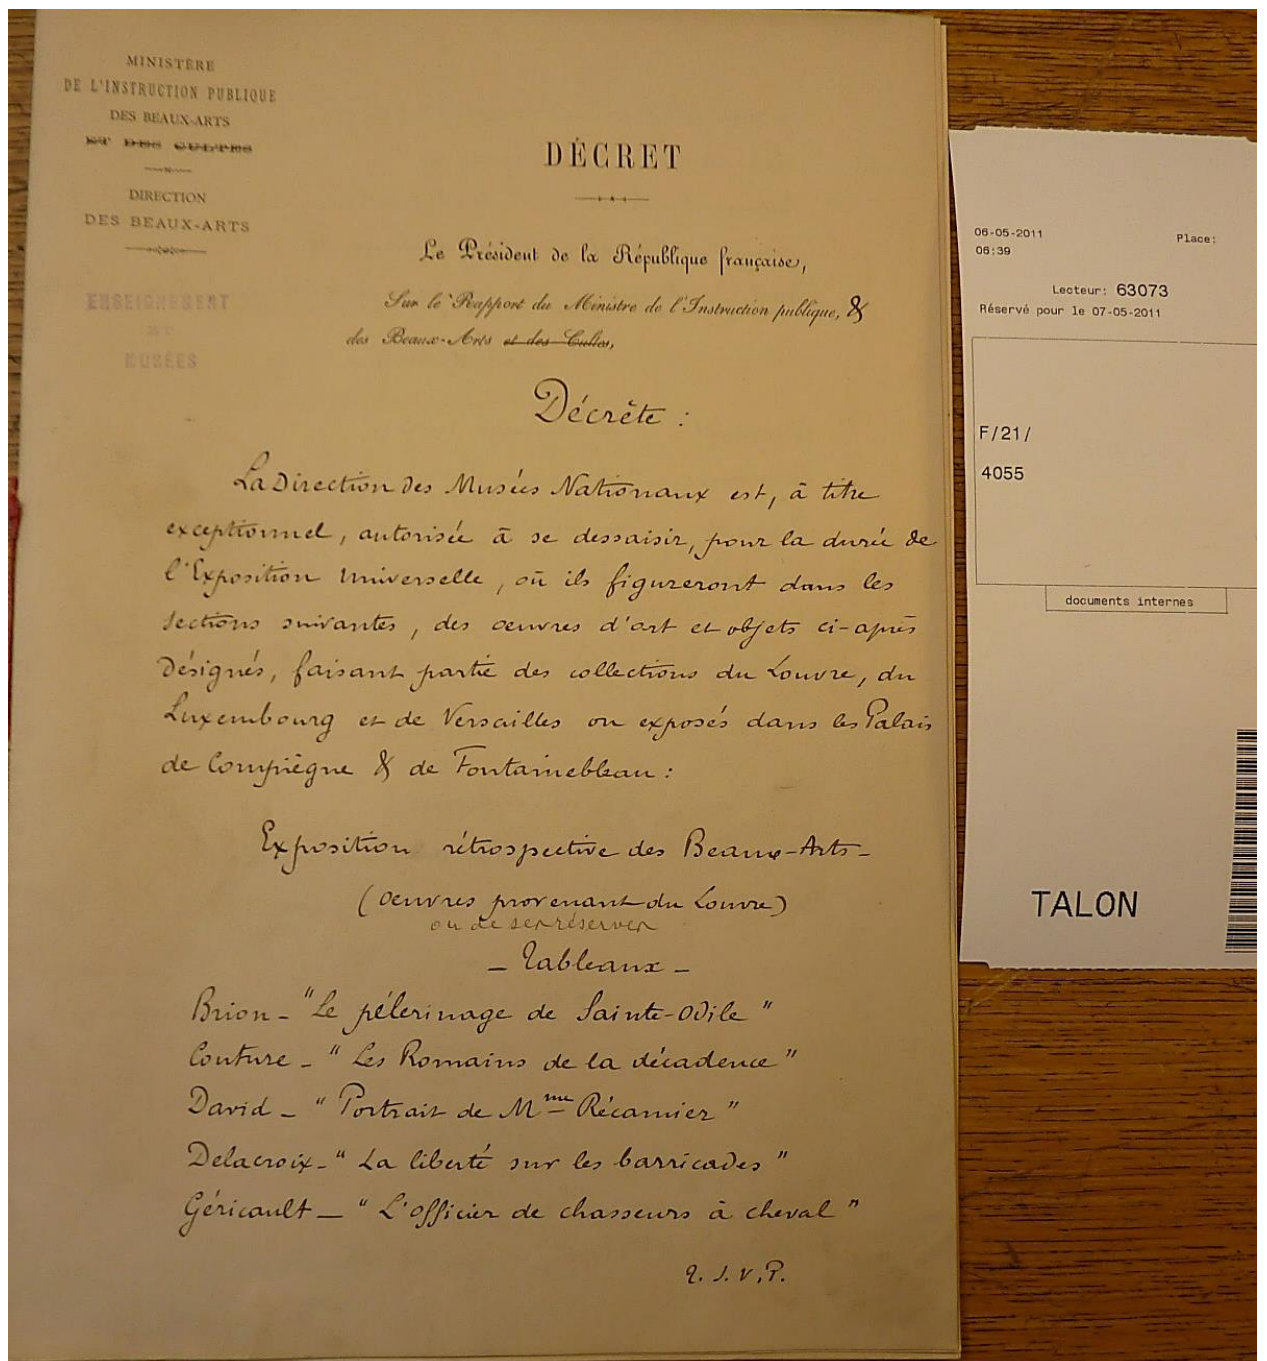 MINISTÈRE
DE L'INSTRUCTION PUBLIQUE
DES BEAUX-ARTS
ET DES CULTES
DIRECTION
DES BEAUX-ARTS
ENSEIGNEMENT
ET
MUSÉES
DÉCRET
Le Président de la République française,
Sur le Rapport du Ministre de l'Instruction publique, &
des Beaux-Arts et des Cultes,
Décrète :
La Direction des Musées Nationaux est, à titre
exceptionnel, autorisée à se dessaisir, pour la durée de
l'Exposition Universelle, où ils figureront dans les
sections suivantes, des œuvres d'art et objets ci-après
Désignés, faisant partie des collections du Louvre, du
Luxembourg et de Versailles ou exposés dans les Palais
de Compiègne & de Fontainebleau :
Exposition rétrospective des Beaux-Arts -
(œuvres provenant du Louvre)
ou de ses réserves
- Tableaux -
Brion - "Le pélerinage de Sainte-Odile"
Couture - "Les Romains de la décadence"
David - "Portrait de Mme Récamier"
Delacroix - "La liberté sur les barricades"
Géricault - "L'officier de chasseurs à cheval"
T. S. V. P.
06-05-2011
06:39
Place:
Lecteur: 63073
Réservé pour le 07-05-2011
F/21/
4055
documents internes
TALON